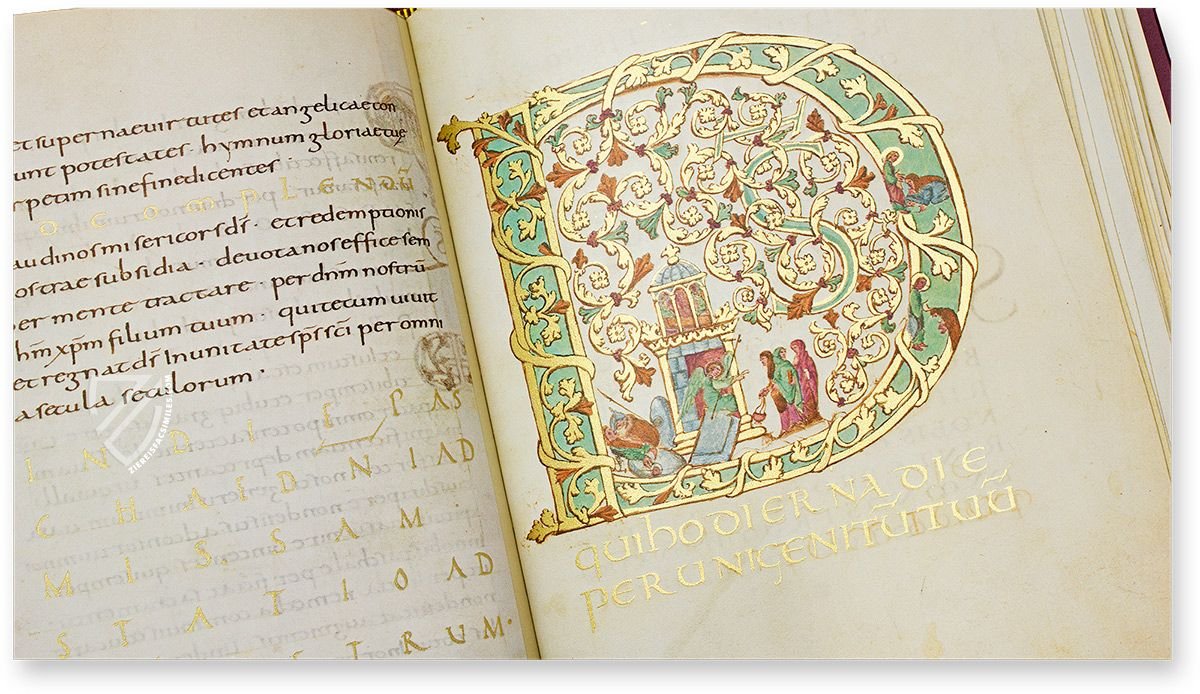 et supernae virtutes et angelicae con
unt potestates · hymnum gloriae tuę
petim sine fine dicentes ·
D COMPLENDŪ
audi nos misericors dS̄ · et redemptionis
ostrae subsidia · devota nos effice sem
er mente tractare · per dnm̄ nostrū
hm̄ xpm̄ filium tuum · qui tecum uiuit
et regnat dS̄ In unitate sp̄s s̄ci per omni
a secula seculorum ·
IN DIE PAS
CHAE DNI AD
MISSAM ·
STATIO AD
TRUM ·
DS
qui hodierna die
per unigenitū tuū
ZIEREISFACSIMILES